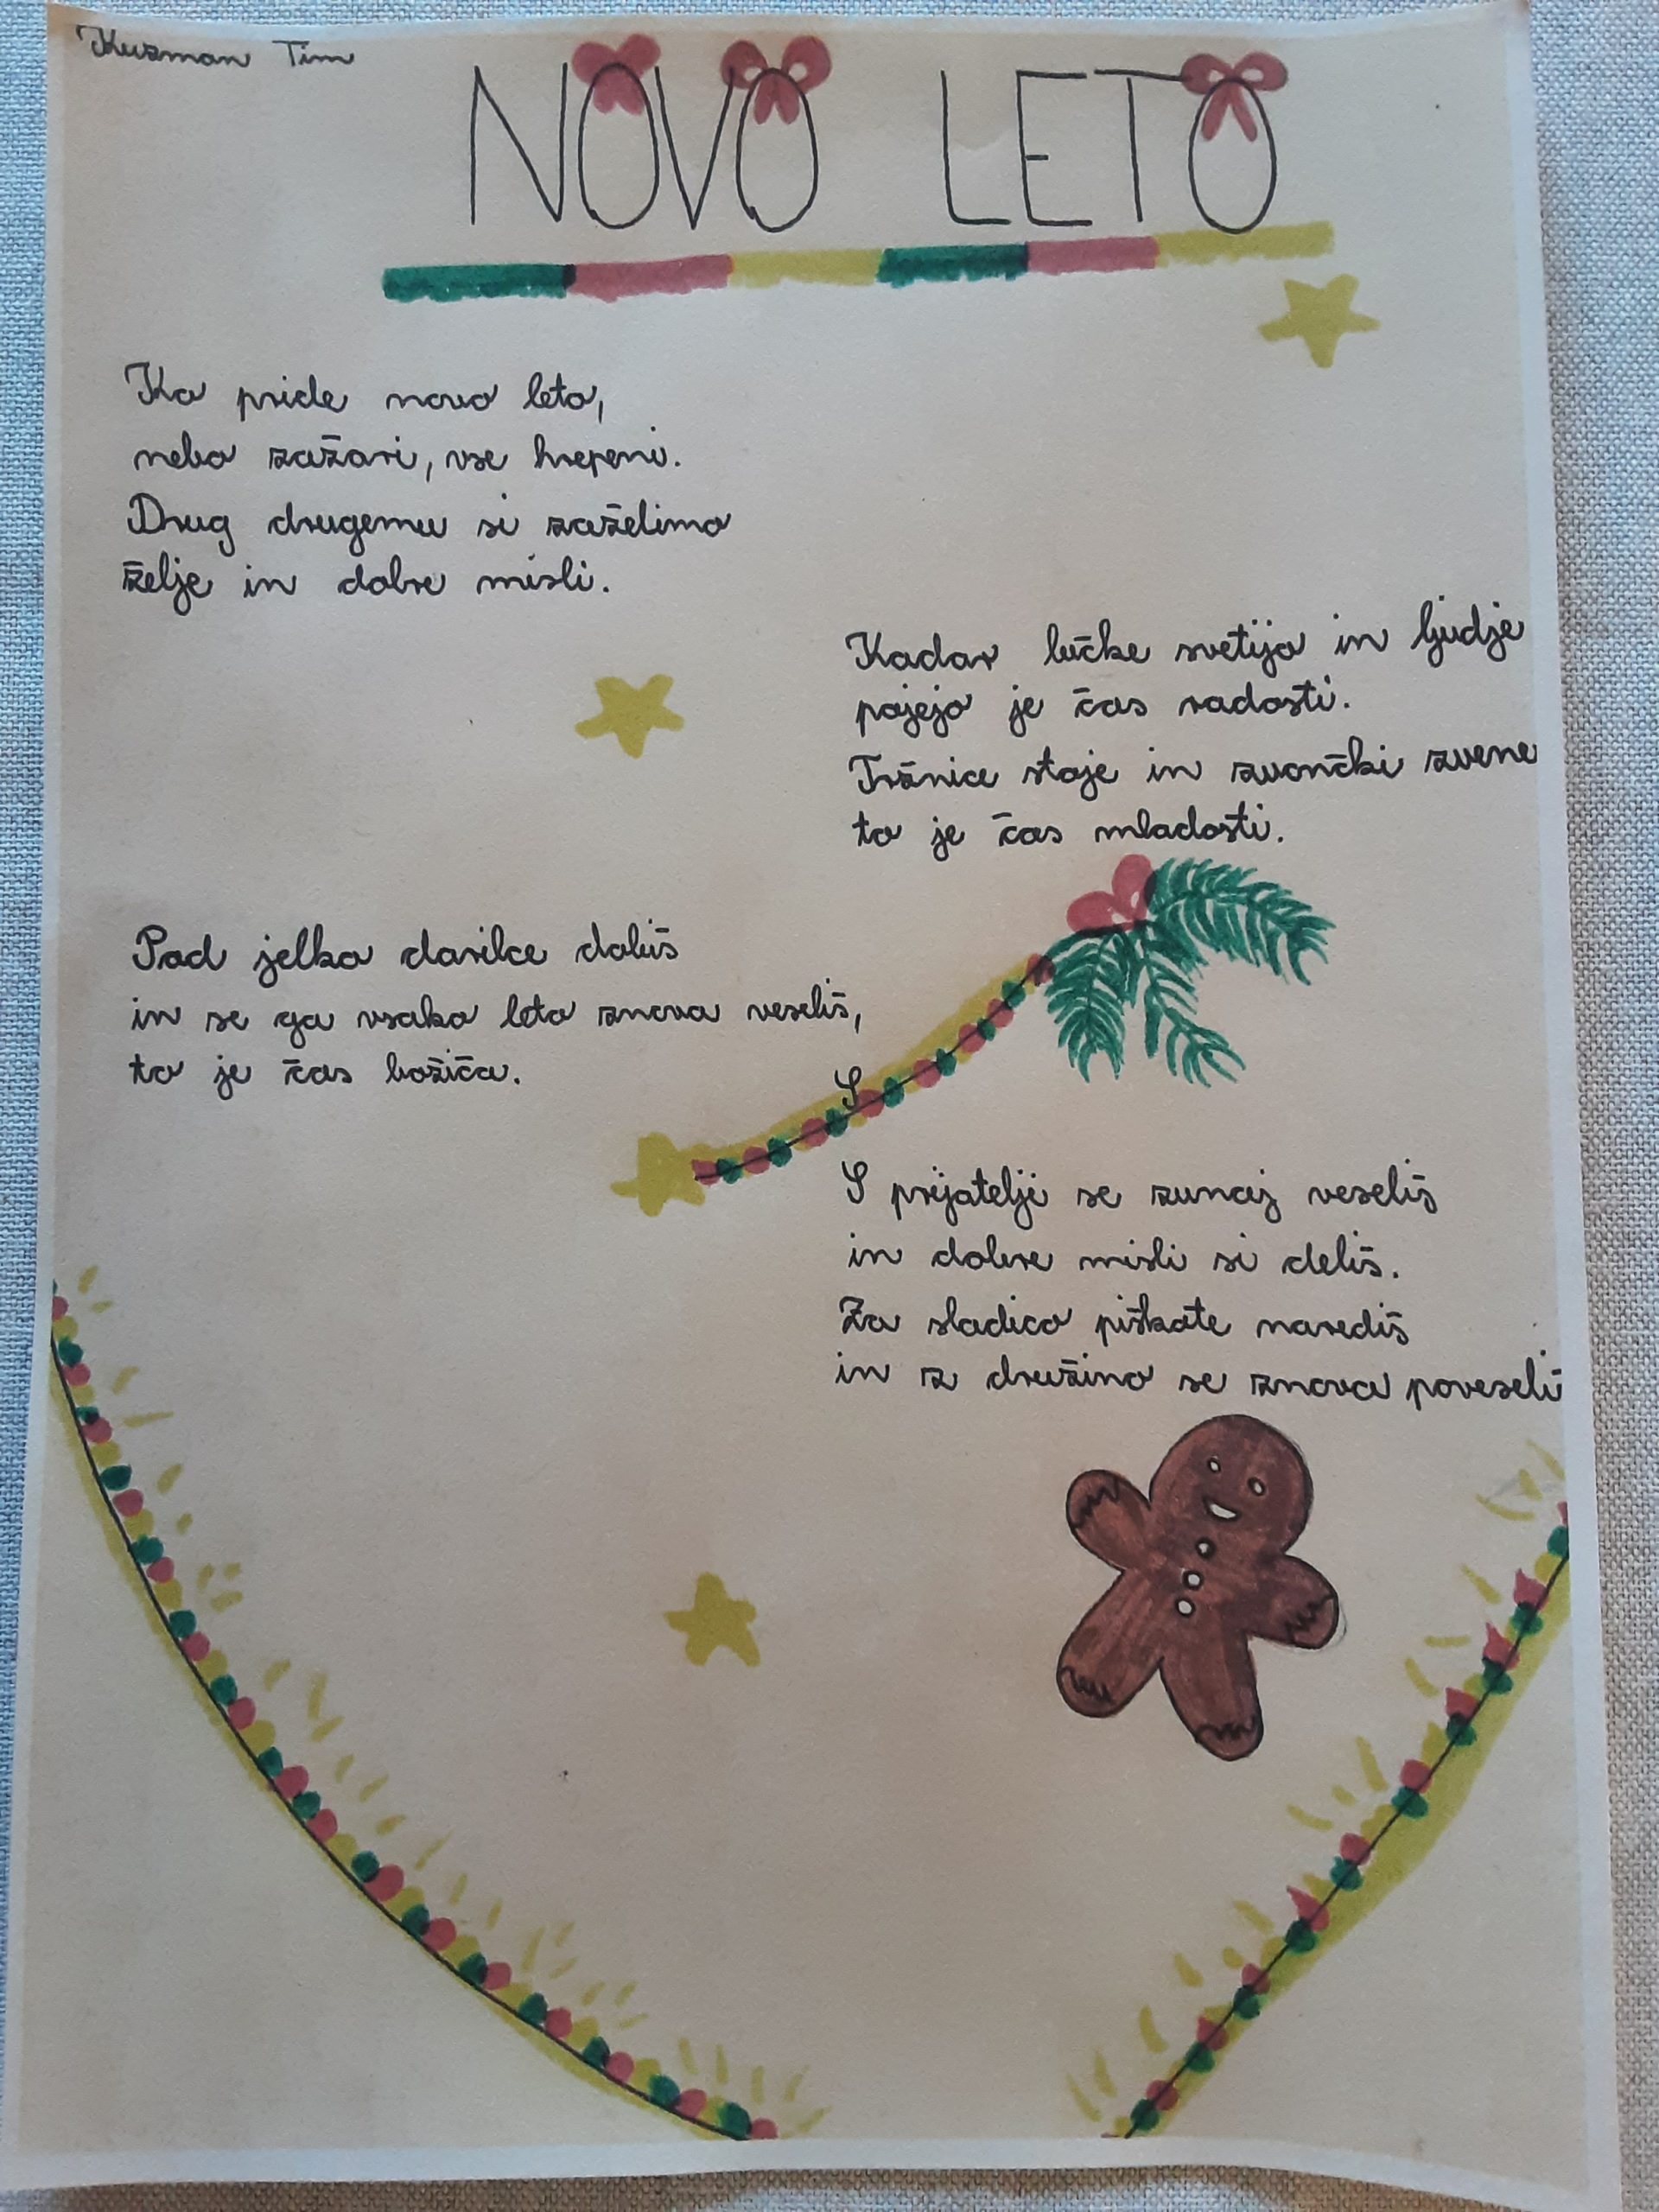 Kuzman Tim
NOVO LETO
Ko pride novo leto,
nebo zažari, vse hrepeni.
Drug drugemu si zaželimo
želje in dobre misli.
Kadar lučke svetijo in ljudje
pojejo je čas radosti.
Tržnice stoje in zvončki zvene
to je čas mladosti.
Pod jelko darilce dobiš
in se ga vsako leto znova veseliš,
to je čas božiča.
S
S prijatelji se zunaj veseliš
in dobre misli si deliš.
Za sladico piškote narediš
in z družino se znova poveseliš